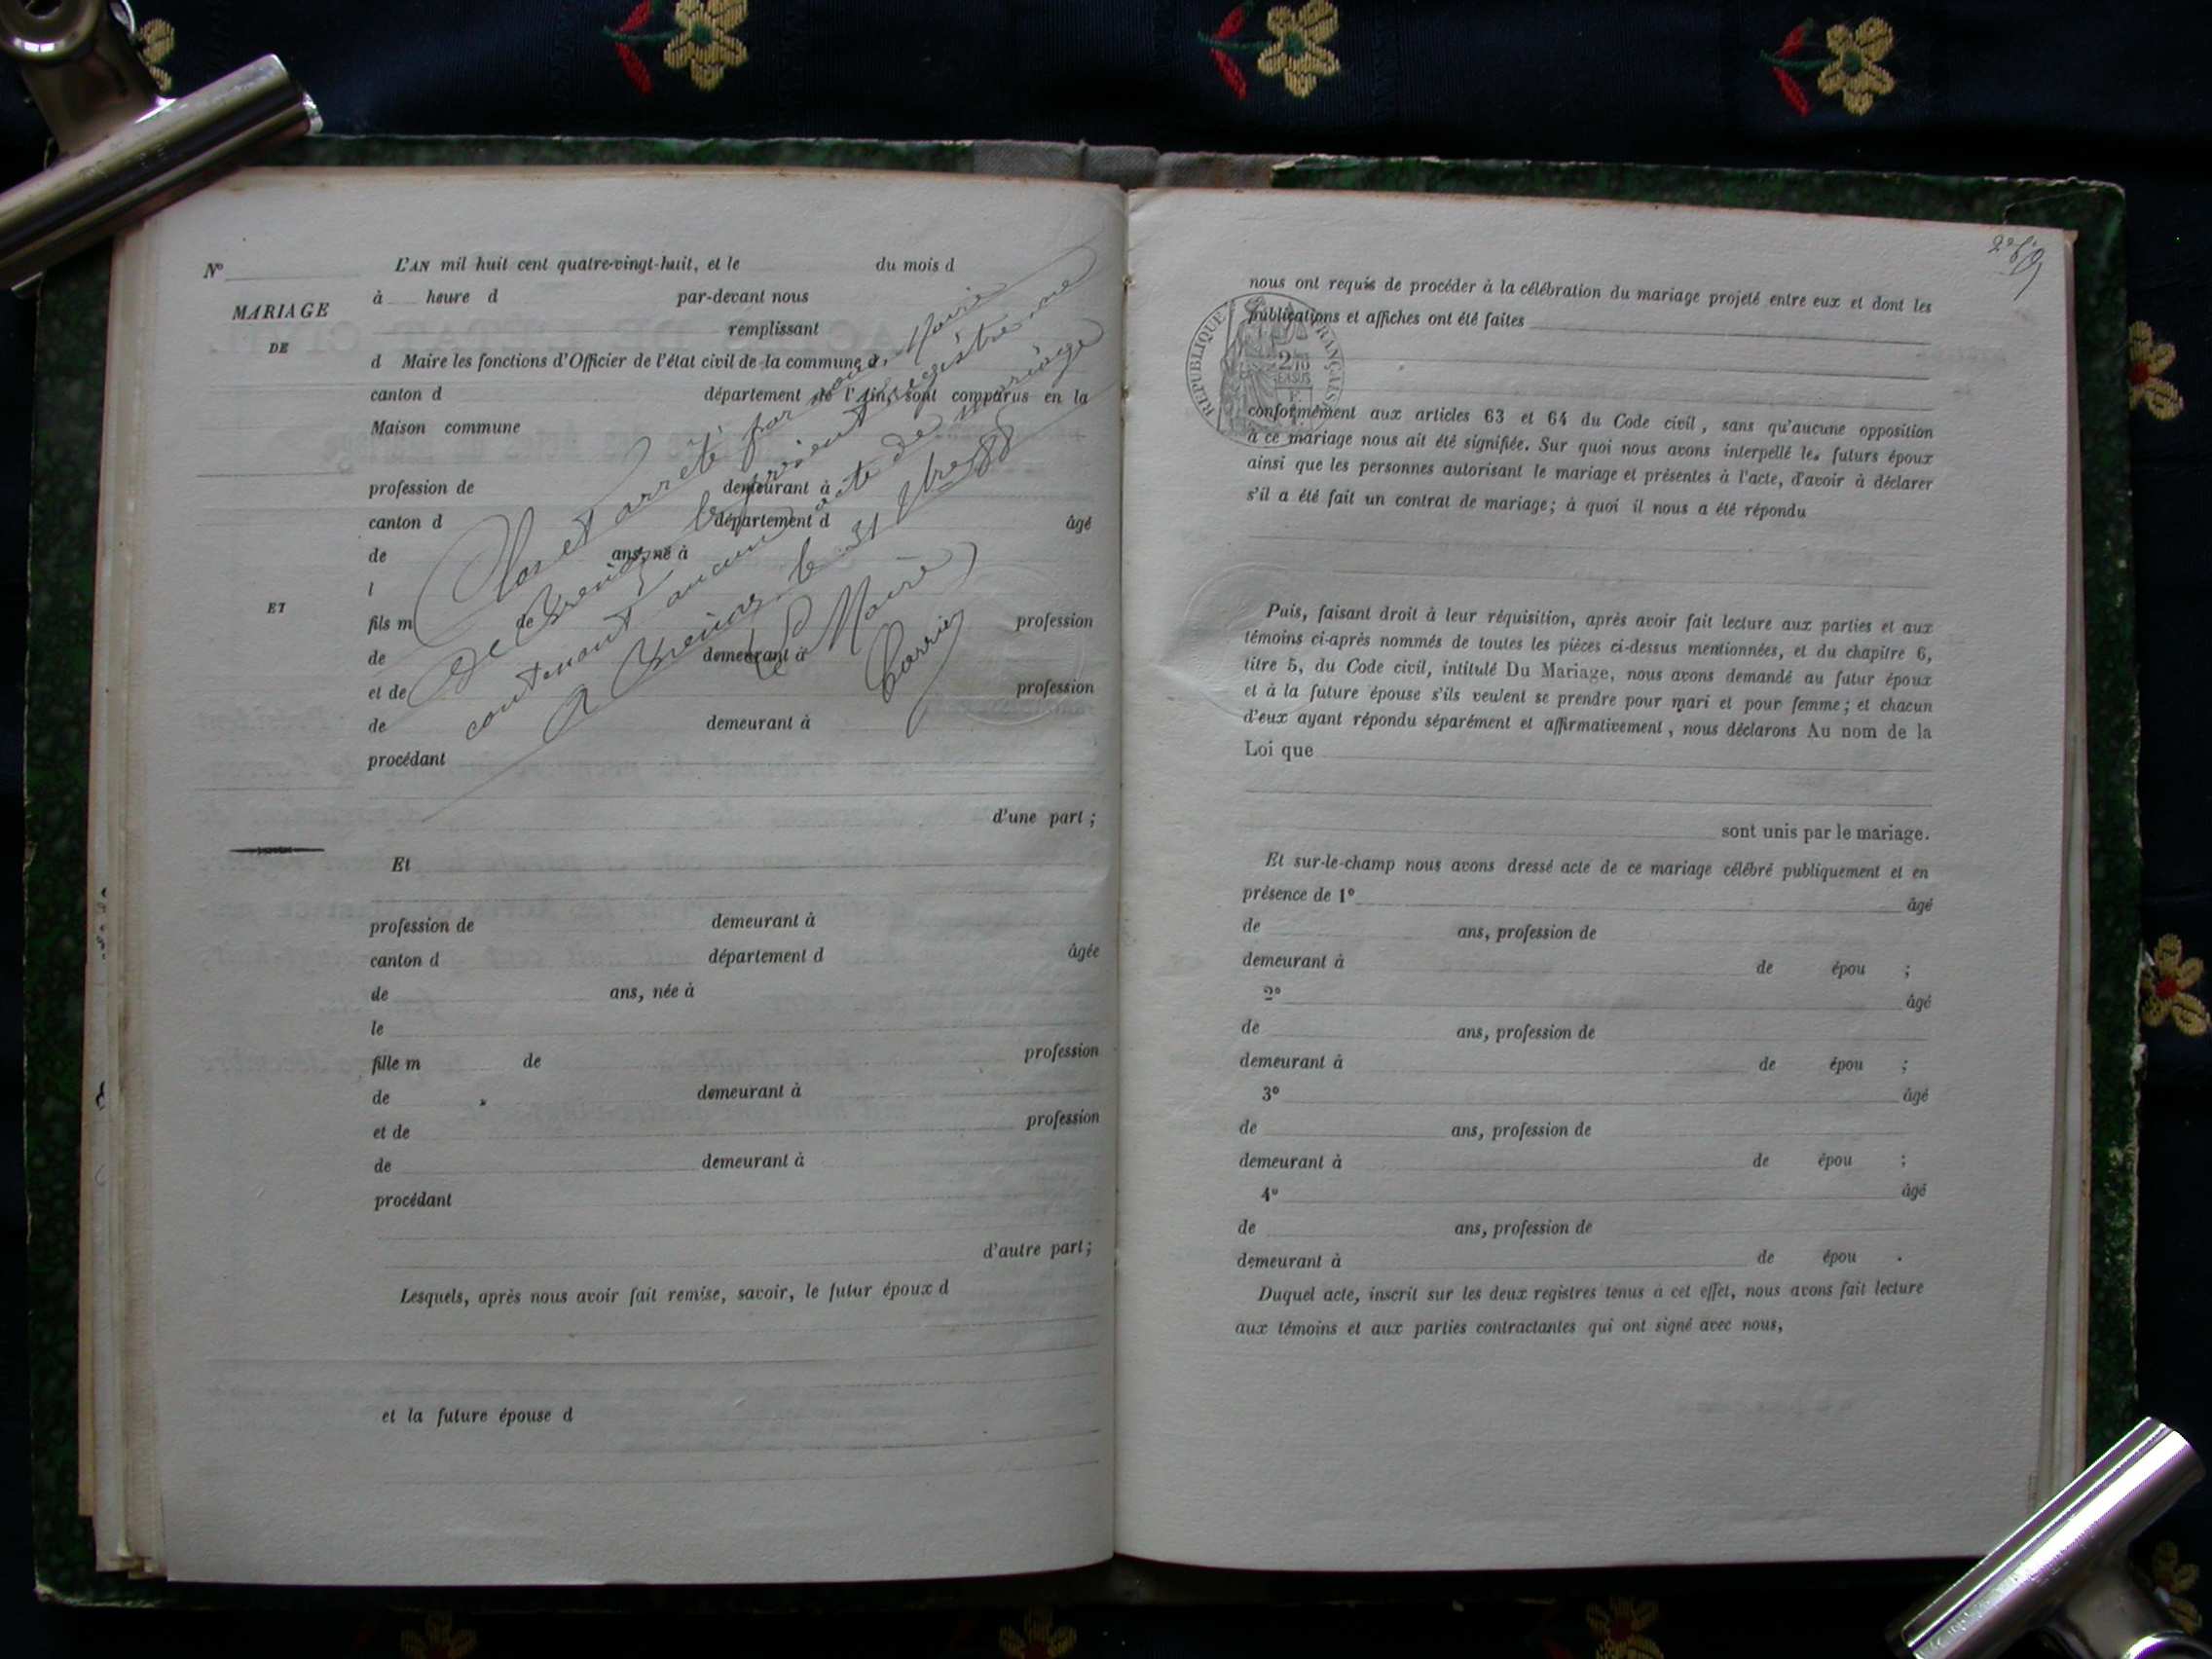 N°
MARIAGE
DE
ET
L'AN mil huit cent quatre-vingt-huit, et le du mois d
à heure d par-devant nous
remplissant
d Maire les fonctions d'Officier de l'état civil de la commune d
canton d département de l'Ain, sont comparus en la
Maison commune
profession de demeurant à
canton d département d âgé
de ans, né à
l
fils m de profession
de demeurant à
et de profession
de demeurant à
procédant
d'une part ;
Clos et arrêté par nous, Maire
de le présent registre ne
contenant aucun acte de mariage
A le 31 Xbre 88
Le Maire
Et
profession de demeurant à
canton d département d âgée
de ans, née à
le
fille m de profession
de demeurant à
et de profession
de demeurant à
procédant
d'autre part ;
Lesquels, après nous avoir fait remise, savoir, le futur époux d
et la future épouse d
nous ont requis de procéder à la célébration du mariage projeté entre eux et dont les
publications et affiches ont été faites
RÉPUBLIQUE FRANÇAISE
conformément aux articles 63 et 64 du Code civil, sans qu'aucune opposition
à ce mariage nous ait été signifiée. Sur quoi nous avons interpellé les futurs époux
ainsi que les personnes autorisant le mariage et présentes à l'acte, d'avoir à déclarer
s'il a été fait un contrat de mariage ; à quoi il nous a été répondu
Puis, faisant droit à leur réquisition, après avoir fait lecture aux parties et aux
témoins ci-après nommés de toutes les pièces ci-dessus mentionnées, et du chapitre 6,
titre 5, du Code civil, intitulé Du Mariage, nous avons demandé au futur époux
et à la future épouse s'ils veulent se prendre pour mari et pour femme ; et chacun
d'eux ayant répondu séparément et affirmativement, nous déclarons Au nom de la
Loi que
sont unis par le mariage.
Et sur-le-champ nous avons dressé acte de ce mariage célébré publiquement et en
présence de 1° âgé
de ans, profession de
demeurant à de épou ;
2° âgé
de ans, profession de
demeurant à de épou ;
3° âgé
de ans, profession de
demeurant à de épou ;
4° âgé
de ans, profession de
demeurant à de épou .
Duquel acte, inscrit sur les deux registres tenus à cet effet, nous avons fait lecture
aux témoins et aux parties contractantes qui ont signé avec nous,